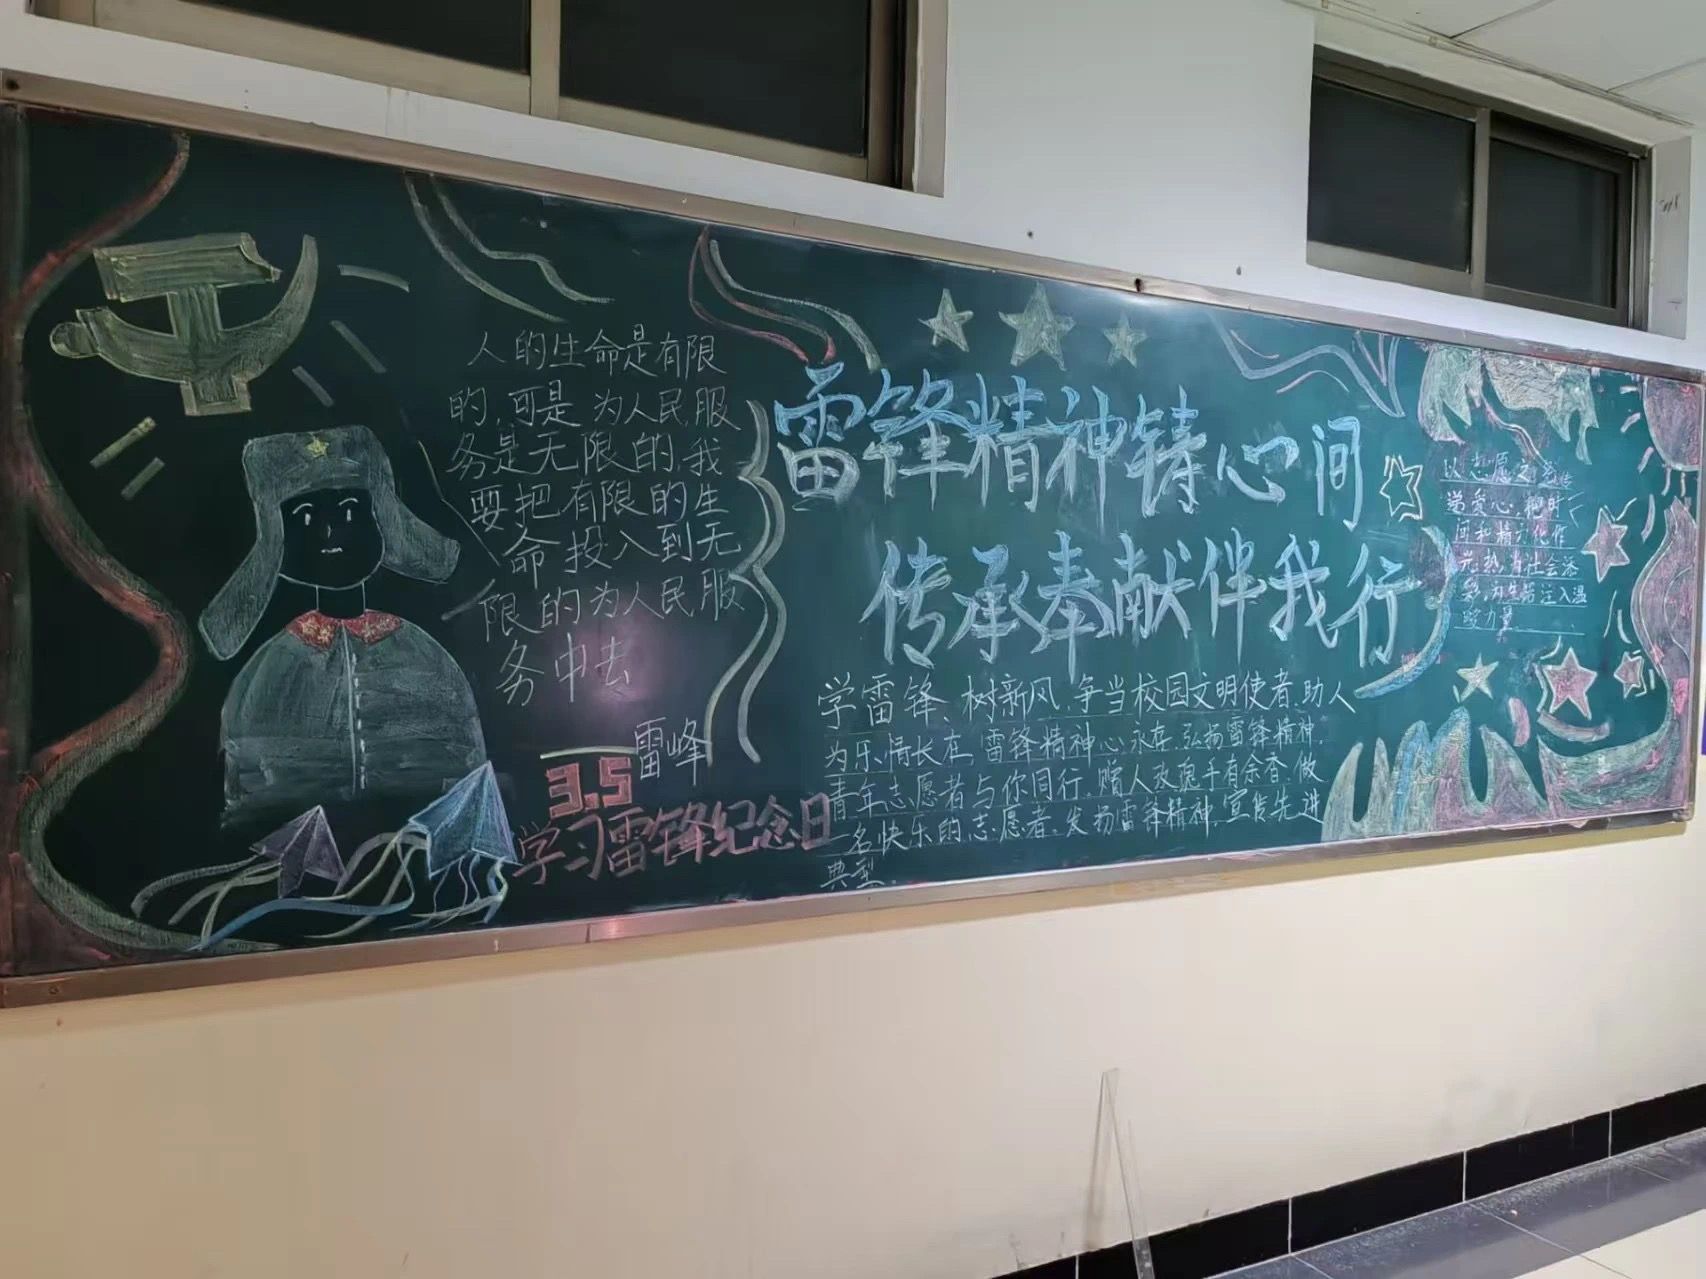 人的生命是有限
的,可是为人民服
务是无限的,我
要把有限的生
命投入到无
限的为人民服
务中去
雷峰
3.5
学习雷锋纪念日
雷锋精神铸心间
传承奉献伴我行
学雷锋、树新风,争当校园文明使者,助人
为乐,情长在,雷锋精神心永存,弘扬雷锋精神,
青年志愿者与你同行,赠人玫瑰手有余香,做
一名快乐的志愿者,发扬雷锋精神,宣传先进
典型.
以志愿之名传
递爱心,把时
间和精力化作
光热,为社会添
彩,为生活注入温
暖力量